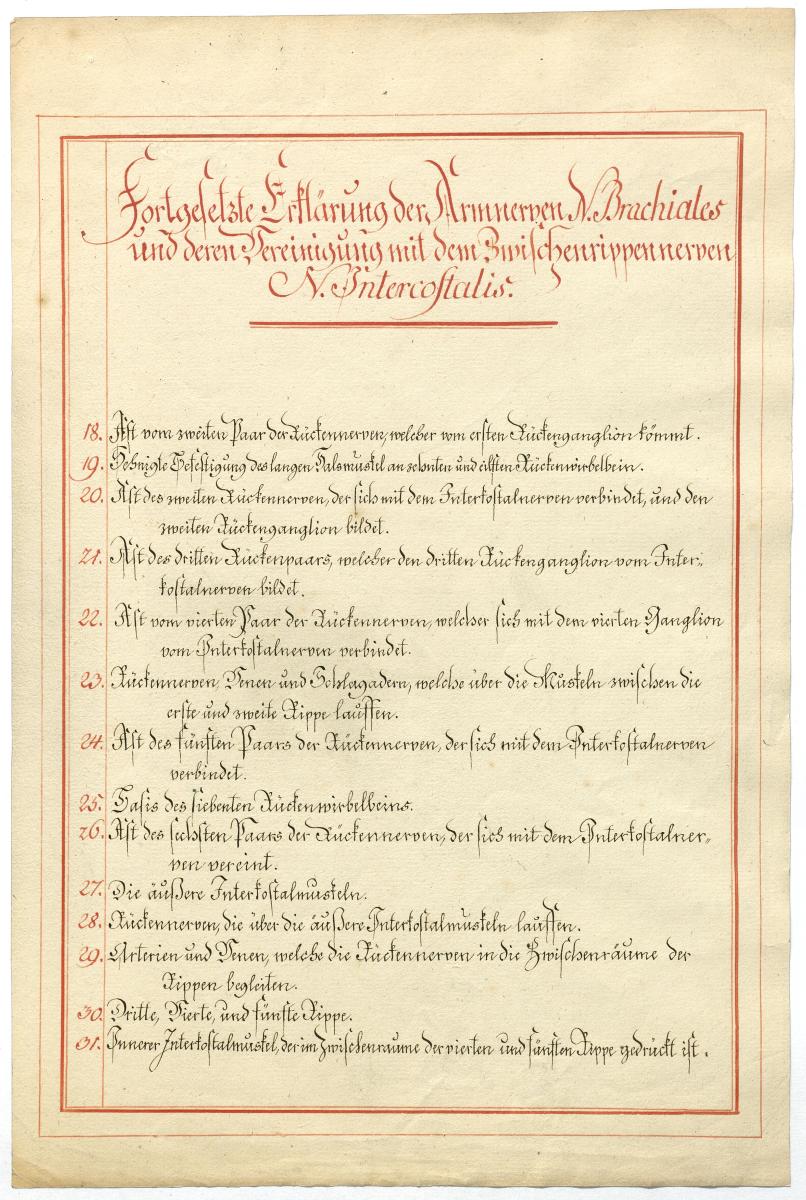 Fortgesetzte Erklärung der Armnerven N. Brachiales
und deren Vereinigung mit dem Zwischenrippennerven
N. Intercostalis.
18. Ast vom zweiten Paar der Rückennerven, welcher vom ersten Rückenganglion kömmt.
19. Sehnigte Befestigung des langen Halsmuskel an zehnten und eilften Rückenwirbelbein.
20. Ast des zweiten Rückennerven, der sich mit dem Interkostalnerven verbindet, und den
zweiten Rückenganglion bildet.
21. Ast des dritten Rückenpaars, welcher den dritten Rückenganglion vom Inter-
kostalnerven bildet.
22. Ast vom vierten Paar der Rückennerven, welcher sich mit dem vierten Ganglion
vom Interkostalnerven verbindet.
23. Rückennerven, Venen und Schlagadern, welche über die Muskeln zwischen die
erste und zweite Rippe lauffen.
24. Ast des fünften Paars der Rückennerven, der sich mit dem Interkostalnerven
verbindet.
25. Basis des siebenten Rückenwirbelbeins.
26. Ast des sechsten Paars der Rückennerven, der sich mit dem Interkostalner-
ven vereint.
27. Die äußere Interkostalmuskeln.
28. Rückennerven, die über die äußere Interkostalmuskeln lauffen.
29. Arterien und Venen, welche die Rückennerven in die Zwischenräume der
Rippen begleiten.
30. Dritte, Vierte, und fünfte Rippe.
31. Innerer Interkostalmuskel, der im Zwischenraume der vierten und fünften Rippe gedrückt ist.